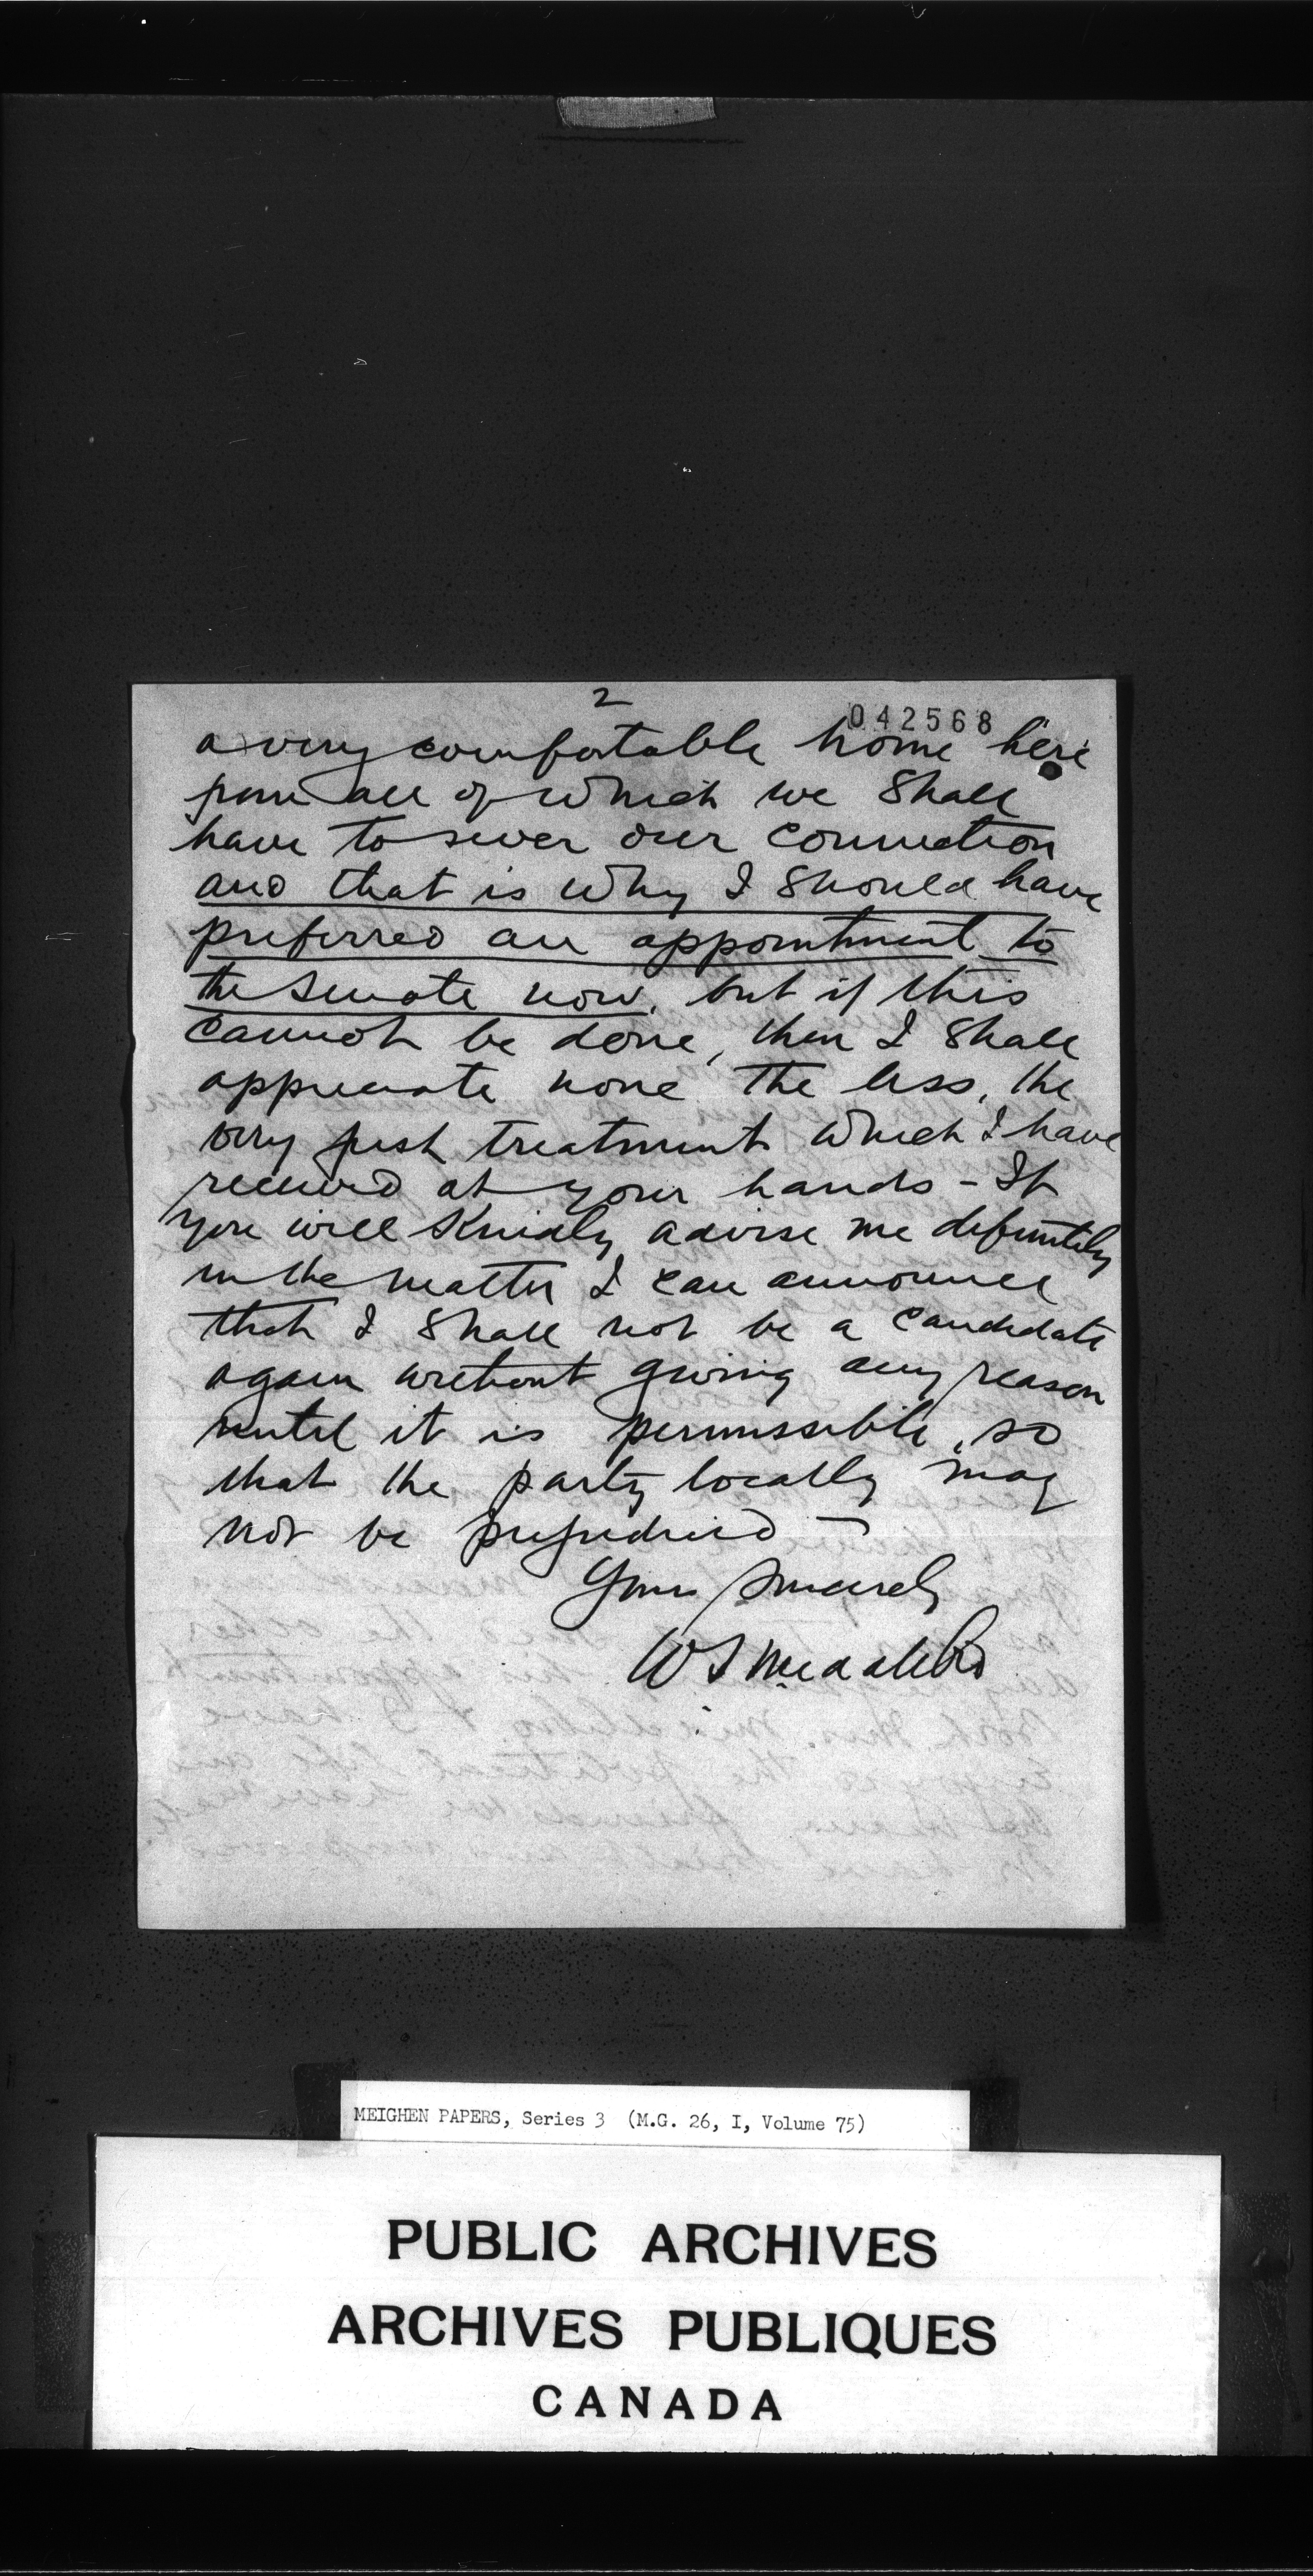 2
042568
a very comfortable home here
from all of which we shall
have to sever our connection
and that is why I should have
preferred an appointment to
the Senate now, but if this
cannot be done, then I shall
appreciate none the less, the
very just treatment which I have
received at your hands - If
you will kindly advise me definitely
in the matter I can announce
that I shall not be a candidate
again without giving any reason
until it is permissible, so
that the party locally may
not be prejudiced -
Yours Sincerely
W S Middlebro
MEIGHEN PAPERS, Series 3 (M.G. 26, I, Volume 75)
PUBLIC ARCHIVES
ARCHIVES PUBLIQUES
CANADA